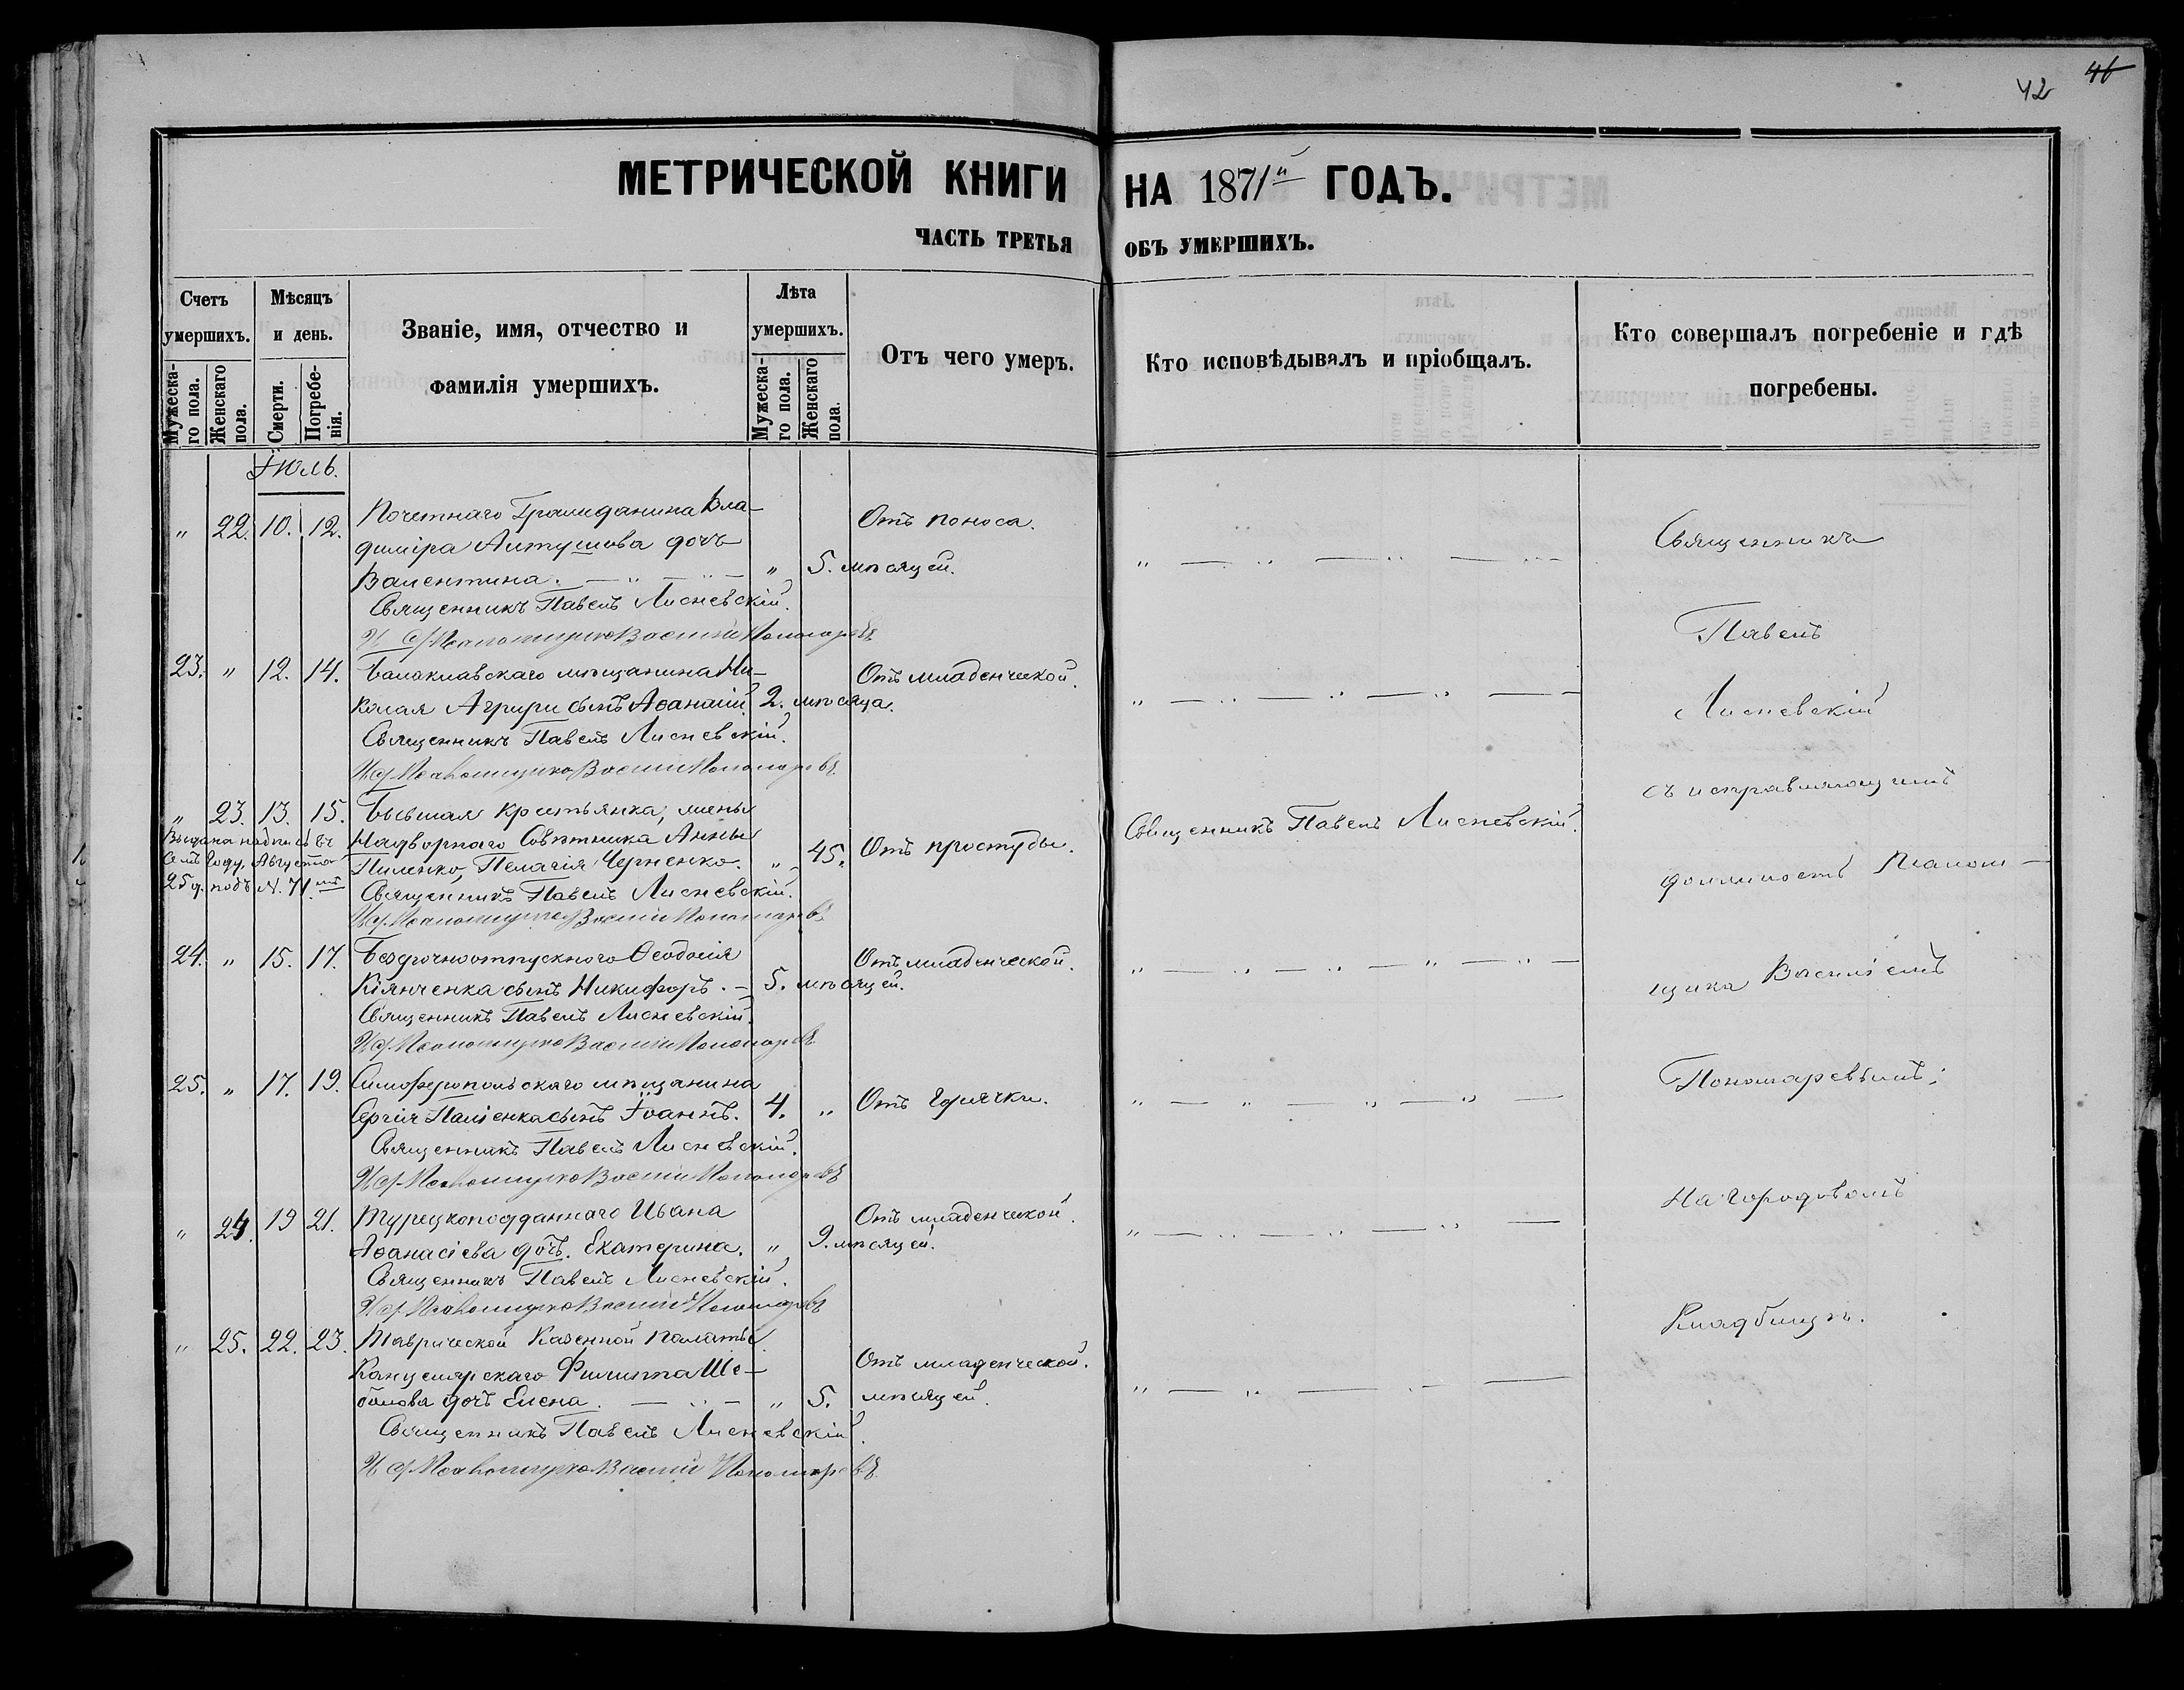 42 46
МЕТРИЧЕСКОЙ КНИГИ НА 1871й ГОДЪ.
ЧАСТЬ ТРЕТЬЯ ОБЪ УМЕРШИХЪ.
Счетъ умершихъ.
Мужеска-го пола.
Женскаго пола.
Мѣсяцъ и день.
Смерти.
Погребе-нія.
Званіе, имя, отчество и фамилія умершихъ.
Лѣта умершихъ.
Мужеска-го пола.
Женскаго пола.
Отъ чего умеръ.
Кто исповѣдывалъ и пріобщалъ.
Кто совершалъ погребеніе и гдѣ погребены.
Іюль.
" 22. 10. 12. Почетнаго Гражданина Вла-
диміра Антушева дочь
Валентина. " 5. мѣсяцей. Отъ поноса.
Священникъ Павелъ Лисневскій.
И д Псаломщика Василій Пономаревъ
23. " 12. 14. Балаклавскаго мѣщанина Ни-
колая Агрири сынъ Аѳанасій. 2. мѣсяца. Отъ младенческой.
Священникъ Павелъ Лисневскій.
И д Псаломщика Василій Пономаревъ
" 23. 13. 15. Бывшая крестьянка, жены
Надворнаго Совѣтника Анны
Пиленко, Пелагія Черненко. " 45. Отъ простуды. Священникъ Павелъ Лисневскій.
Выдана надпись въ
семъ году, Августа
25 д. подъ N. 71.мъ
Священникъ Павелъ Лисневскій.
И д Псаломщика Василій Пономаревъ
24. " 15. 17. Безсрочноотпускного Ѳеодосія
Кіянченка сынъ Никифоръ. 5. мѣсяцей. Отъ младенческой.
Священникъ Павелъ Лисневскій.
И д Псаломщика Василій Пономаревъ
25. " 17. 19. Симферопольскаго мѣщанина
Сергія Паліенка сынъ Іоаннъ. 4. " Отъ горячки.
Священникъ Павелъ Лисневскій.
И д Псаломщика Василій Пономаревъ
" 24. 19 21. Турецкоподданнаго Ивана
Аѳанасіева дочь. Екатерина. " 9. мѣсяцей. Отъ младенческой.
Священникъ Павелъ Лисневскій.
И д Псаломщика Василій Пономаревъ
" 25. 22. 23. Таврической Казенной палаты
Канцелярскаго Филиппа Ше-
балова дочь Елена. " 5. мѣсяцей. Отъ младенческой.
Священникъ Павелъ Лисневскій.
И д Псаломщика Василій Пономаревъ
Священникъ
Павелъ
Лисневскій
съ исправляющимъ
должность Псалом-
щика Василіемъ
Пономаревымъ;
На городовомъ
Кладбищѣ.